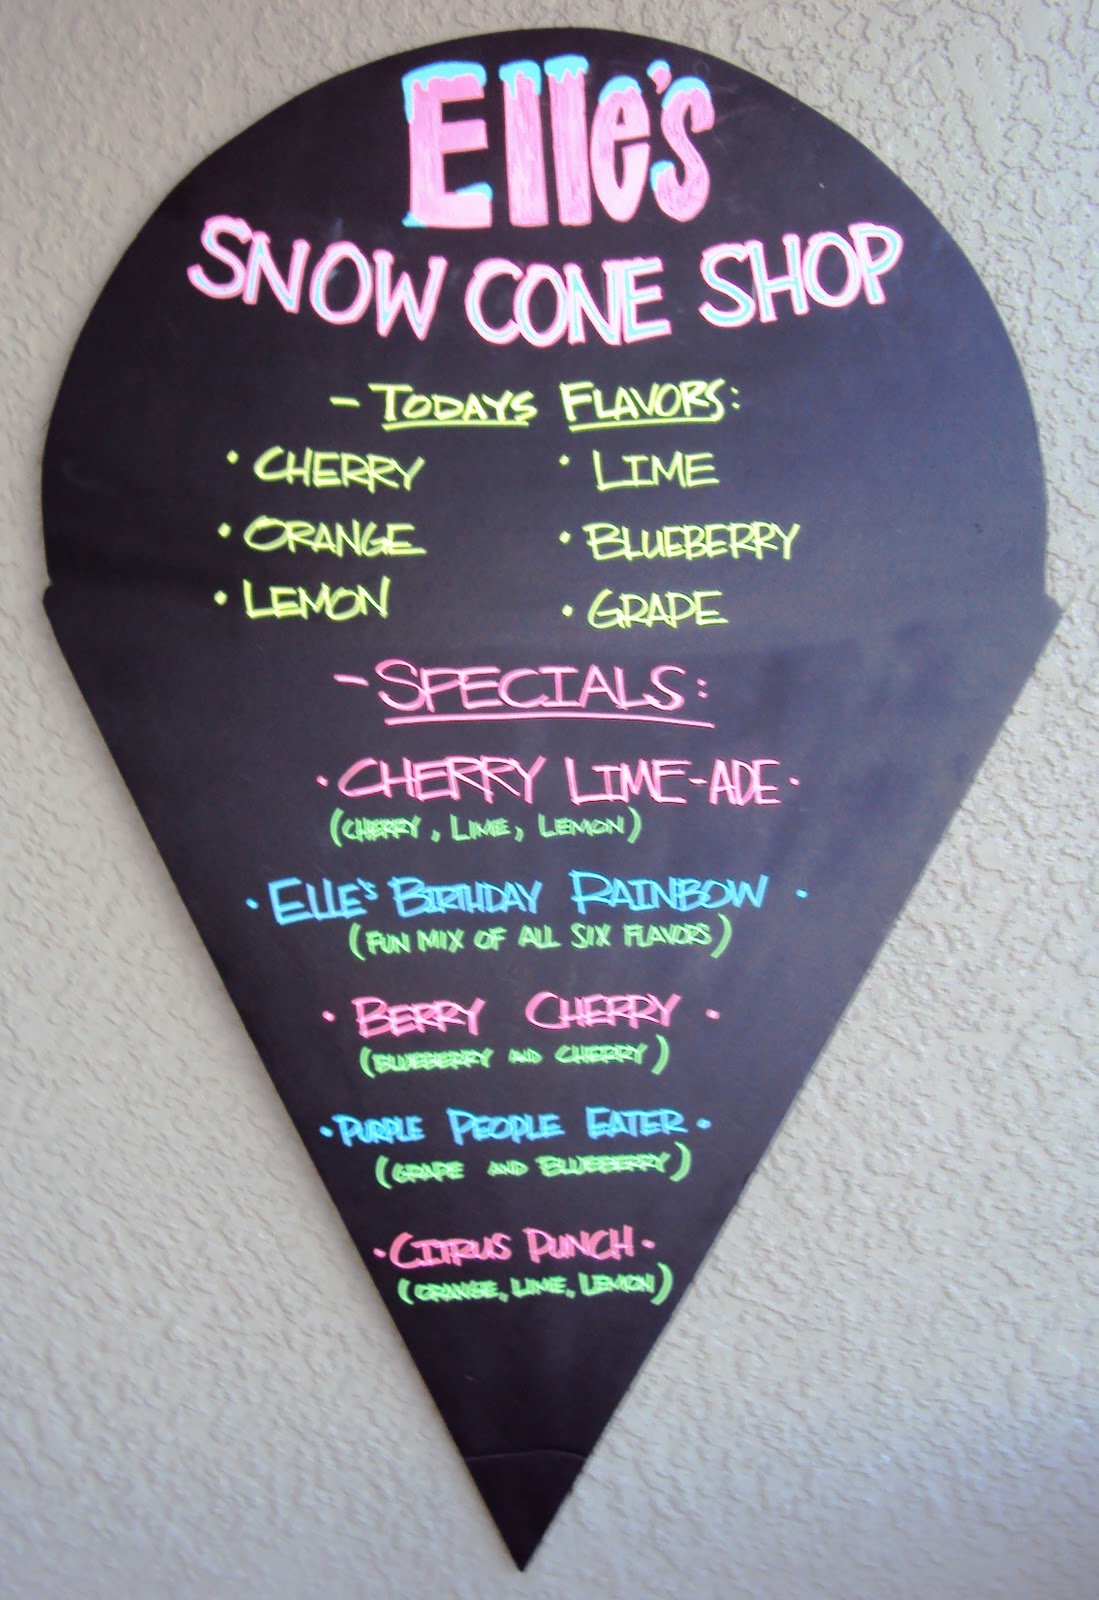 Elle's
SNOW CONE SHOP
- TODAYS FLAVORS:
• CHERRY
• ORANGE
• LEMON
• LIME
• BLUEBERRY
• GRAPE
- SPECIALS:
• CHERRY LIME-ADE •
(CHERRY, LIME, LEMON)
• ELLE'S BIRTHDAY RAINBOW •
(FUN MIX OF ALL SIX FLAVORS)
• BERRY CHERRY •
(BLUEBERRY AND CHERRY)
• PURPLE PEOPLE EATER •
(GRAPE AND BLUEBERRY)
• CITRUS PUNCH •
(ORANGE, LIME, LEMON)